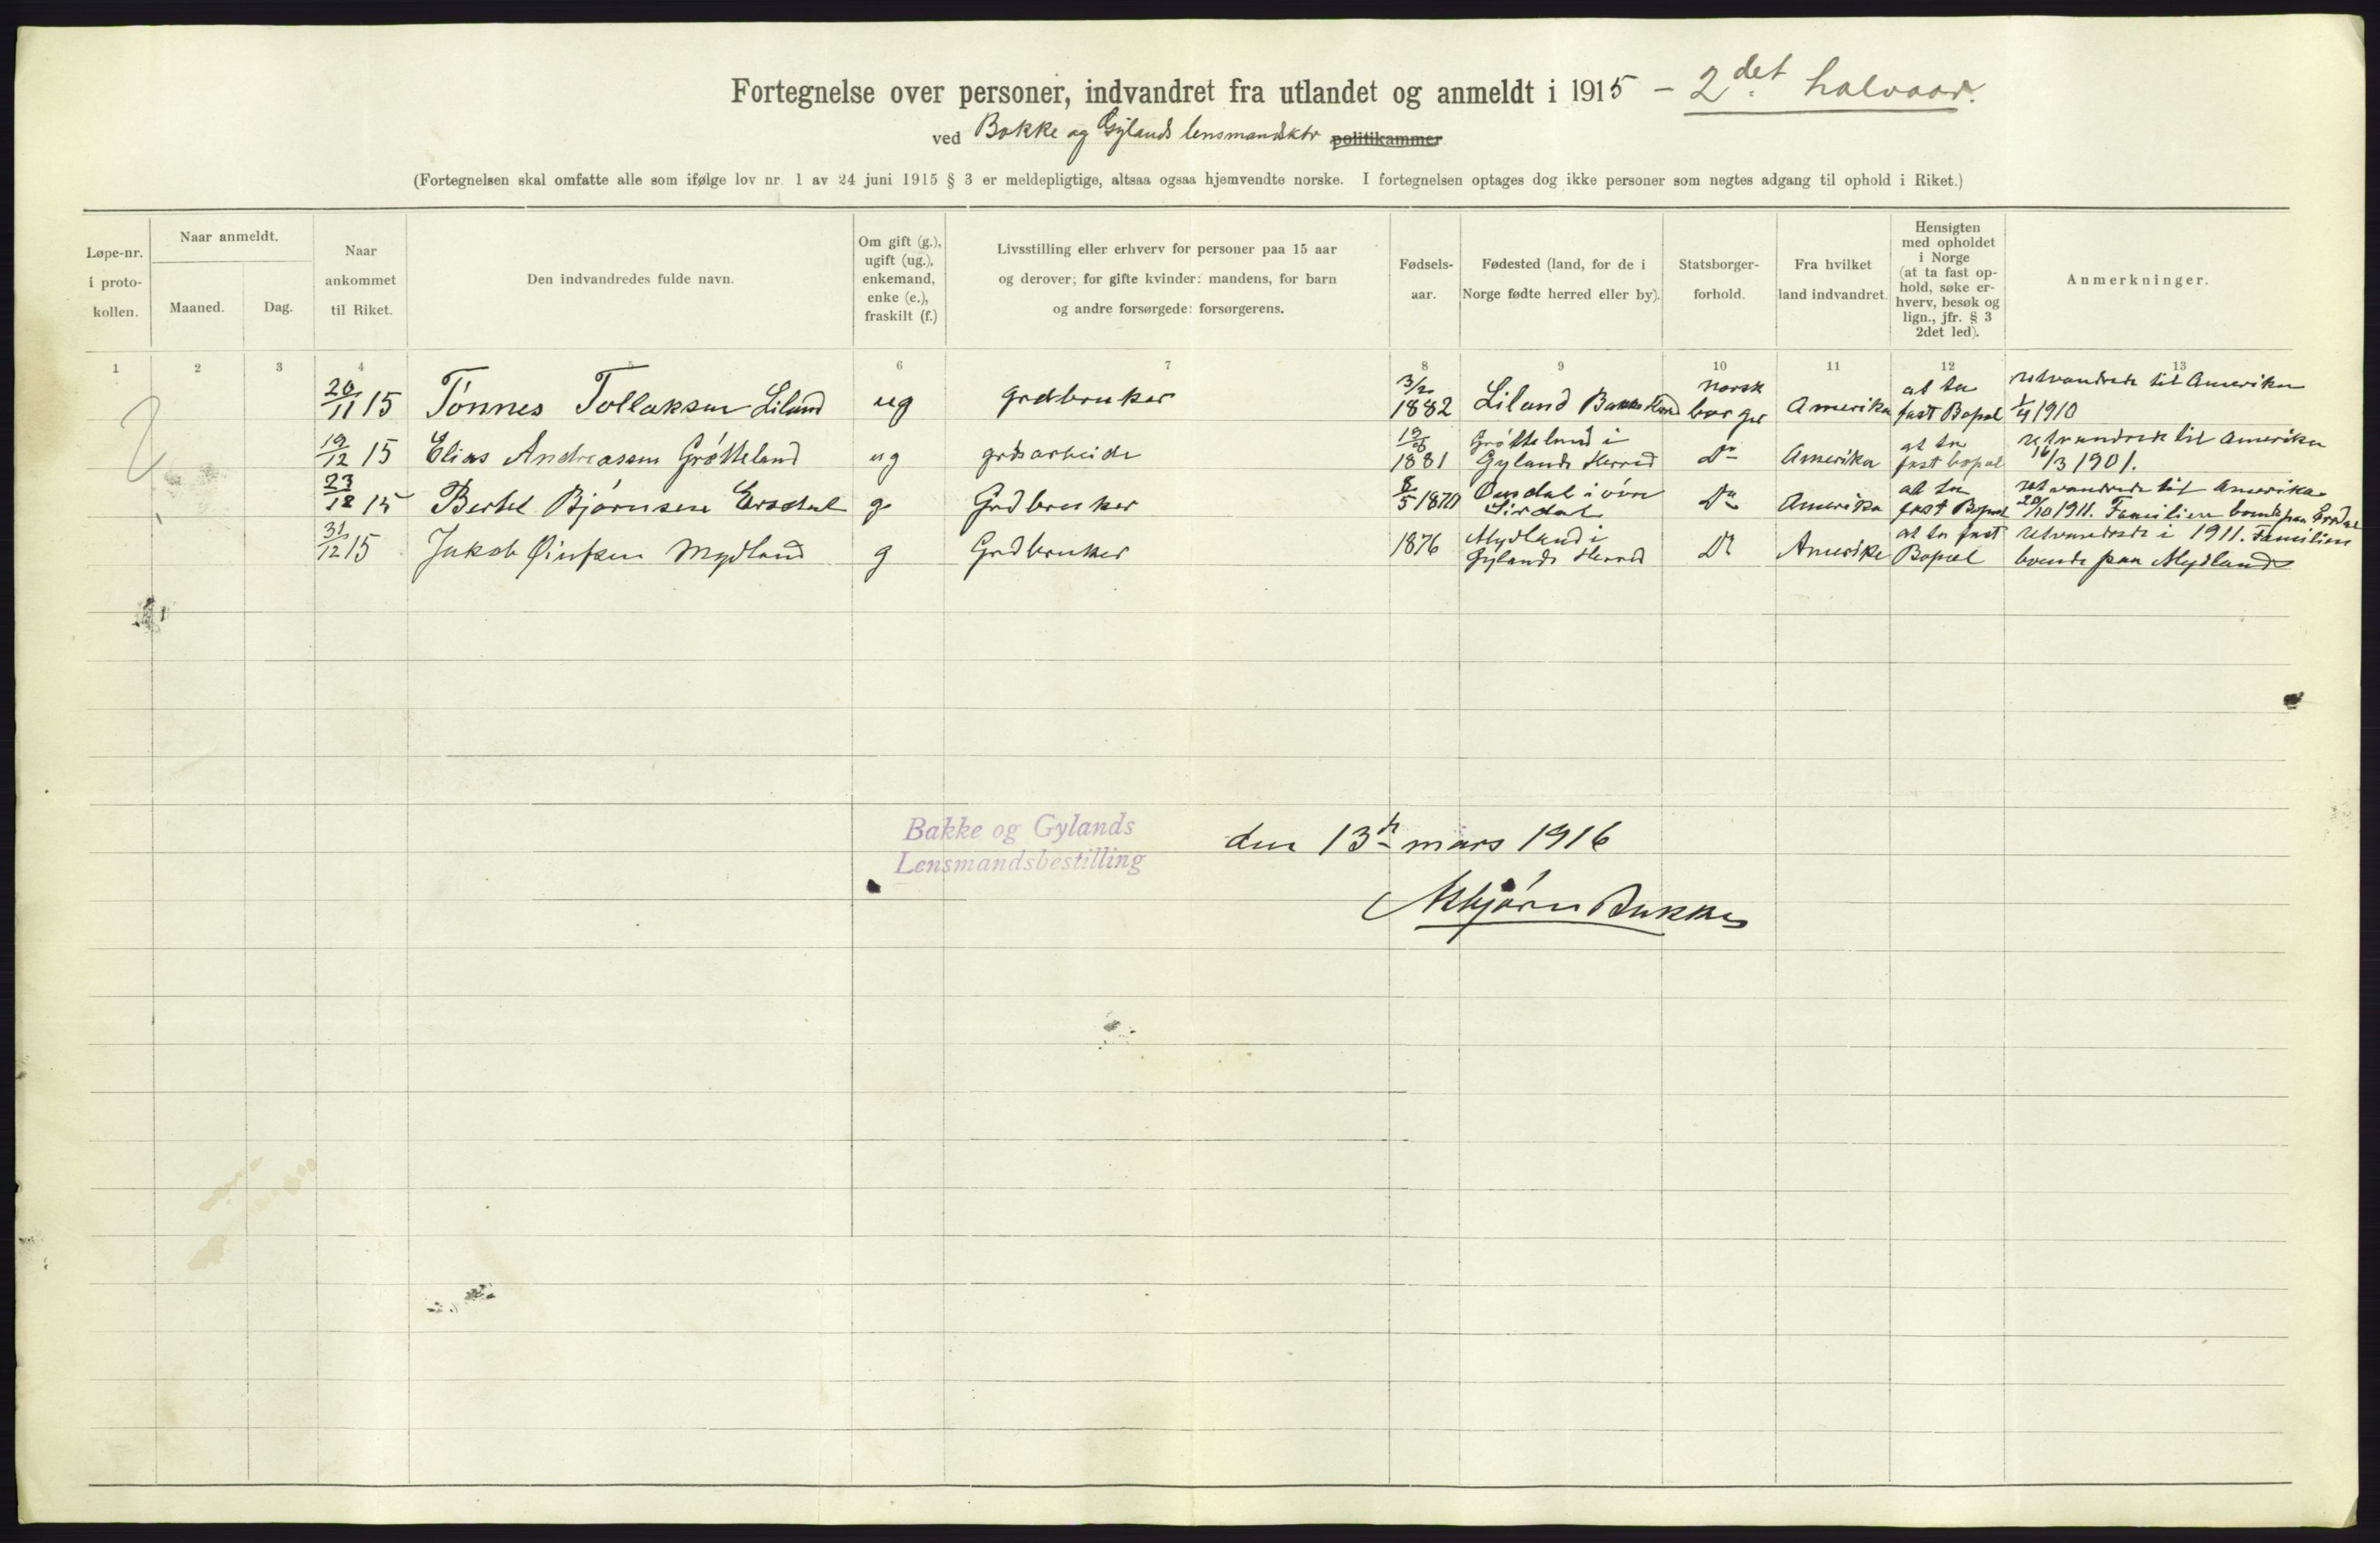 Fortegnelse over personer, indvandret fra utlandet og anmeldt i 1915 – 2det halvaar.
ved Bakke og Gylands lensmandsktr politikammer
(Fortegnelsen skal omfatte alle som ifølge lov nr. 1 av 24 juni 1915 § 3 er meldepligtige, altsaa ogsaa hjemvendte norske. I fortegnelsen optages dog ikke personer som negtes adgang til ophold i Riket.)
Løpe-nr.
i proto-
kollen.
Naar anmeldt.
Maaned.
Dag.
Naar
ankommet
til Riket.
Den indvandredes fulde navn.
Om gift (g.),
ugift (ug.),
enkemand,
enke (e.),
fraskilt (f.)
Livsstilling eller erhverv for personer paa 15 aar
og derover; for gifte kvinder: mandens, for barn
og andre forsørgede: forsørgerens.
Fødsels-
aar.
Fødested (land, for de i
Norge fødte herred eller by).
Statsborger-
forhold.
Fra hvilket
land indvandret.
Hensigten
med opholdet
i Norge
(at ta fast op-
hold, søke er-
hverv, besøk og
lign., jfr. § 3
2det led).
Anmerkninger.
1 2 3 4 5 6 7 8 9 10 11 12 13
20/11 15 Tønnes Tollaksen Liland ug grdbruker 3/2 1882 Liland Bakke Herred norsk borger Amerika at ta fast Bopæl utvandrede til Amerika 1/4 1910
19/12 15 Elias Andreassen Grøtteland ug grdsarbeide 1881 Grøtteland i Gylands Herred Do Amerika at ta fast bopæl utvandrede til Amerika 16/3 1901.
23/12 15 Bertel Bjørnsen Ersdal g Grdbruker 8/5 1870 i øvre Sirdal Do Amerika at ta fast Bopæl utvandrede til Amerika 20/10 1911. Familien boende paa Ersdal
31/12 15 Jakob Mydland g Grdbruker 1876 Mydland i Gylands Herred Do Amerika at ta fast Bopæl utvandrede i 1911. Familien boende paa Mydland
Bakke og Gylands
Lensmandsbestilling
den 13de mars 1916
Asbjørn Bakke